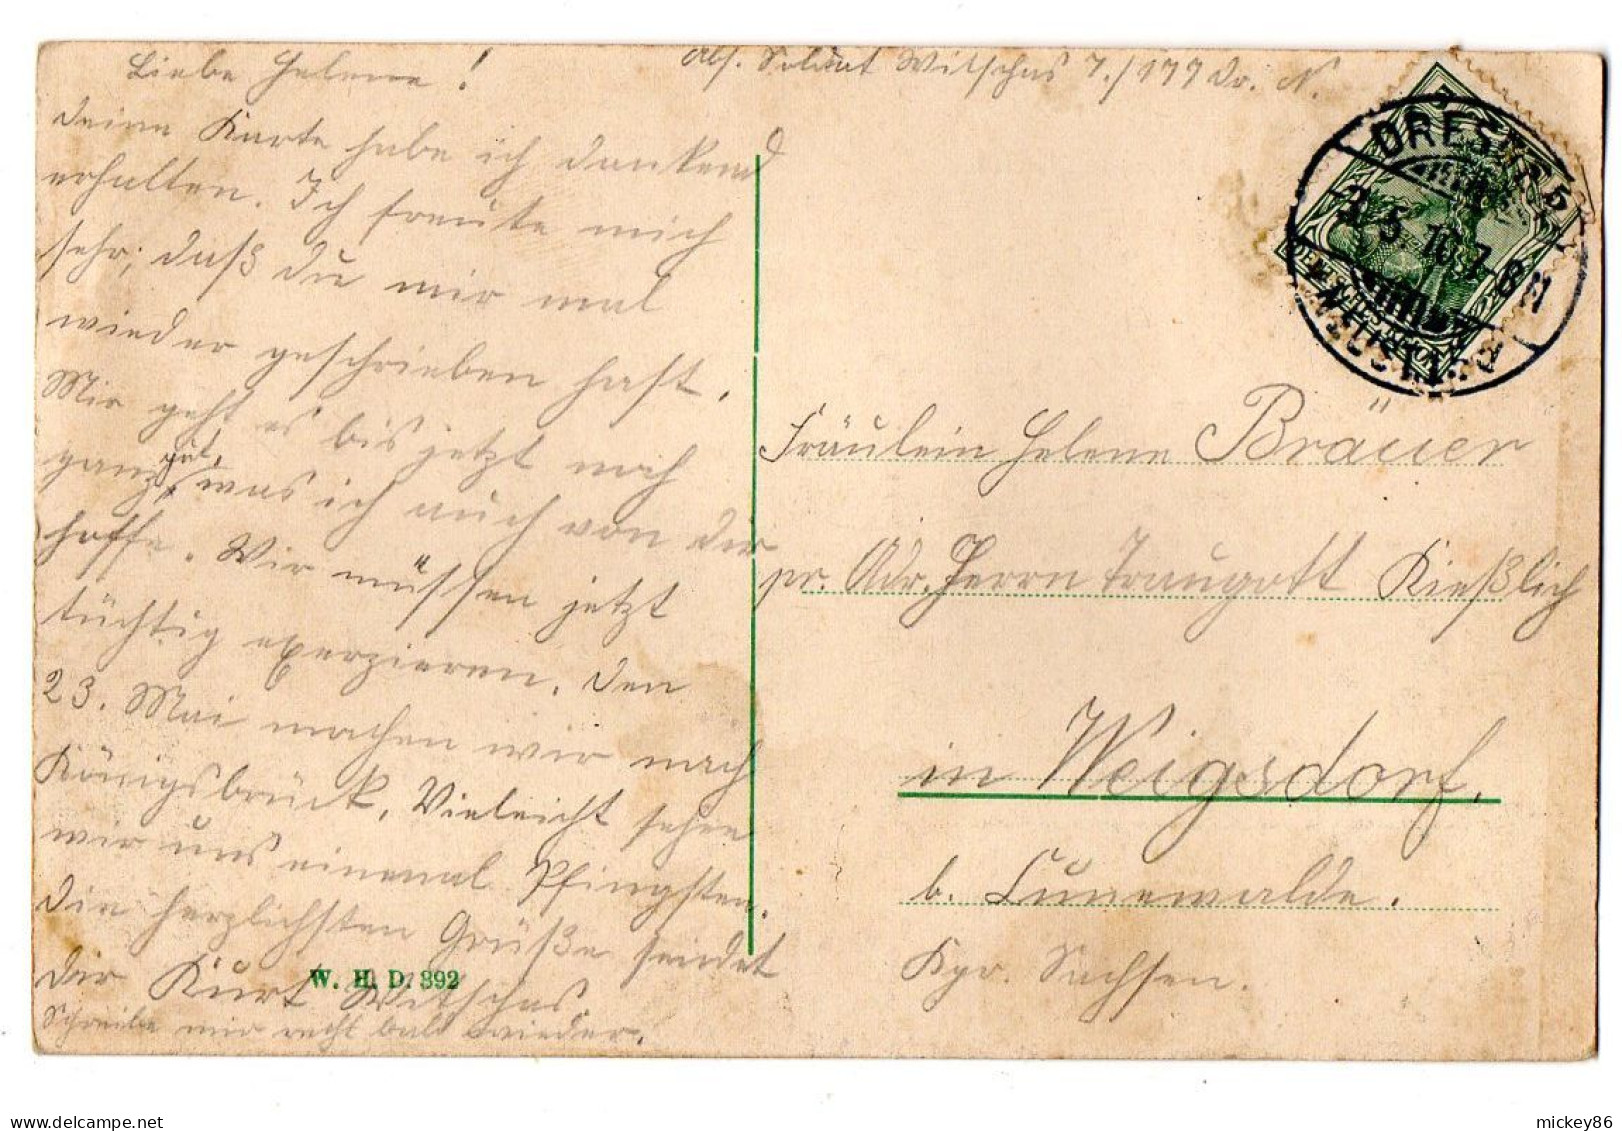 Abs. Soldat Witschas 7./177 Dr. N.
Liebe Helene!
Deine Karte habe ich dankend
erhalten. Ich freute mich
sehr, daß du mir mal
wieder geschrieben hast.
Mir geht es bis jetzt noch
ganz gut, was ich auch von Dir
hoffe. Wir müssen jetzt
tüchtig exerzieren. Den
23. Mai machen wir nach
Königsbrück. Vieleicht sehen
wir uns einmal Pfingsten.
Die herzlichsten Grüße sendet
Dir Kurt Witschas.
Schreibe mir recht bald wieder.
W. H. D. 392
DRESDEN
3.5.10.7-8N
NEUST.
DEUTSCHES REICH
Fräulein Helene Bräuer
pr. Adr. Herrn Traugott Kießlich
in Weigsdorf.
b. Cunewalde.
Kgr. Sachsen.
mickey86